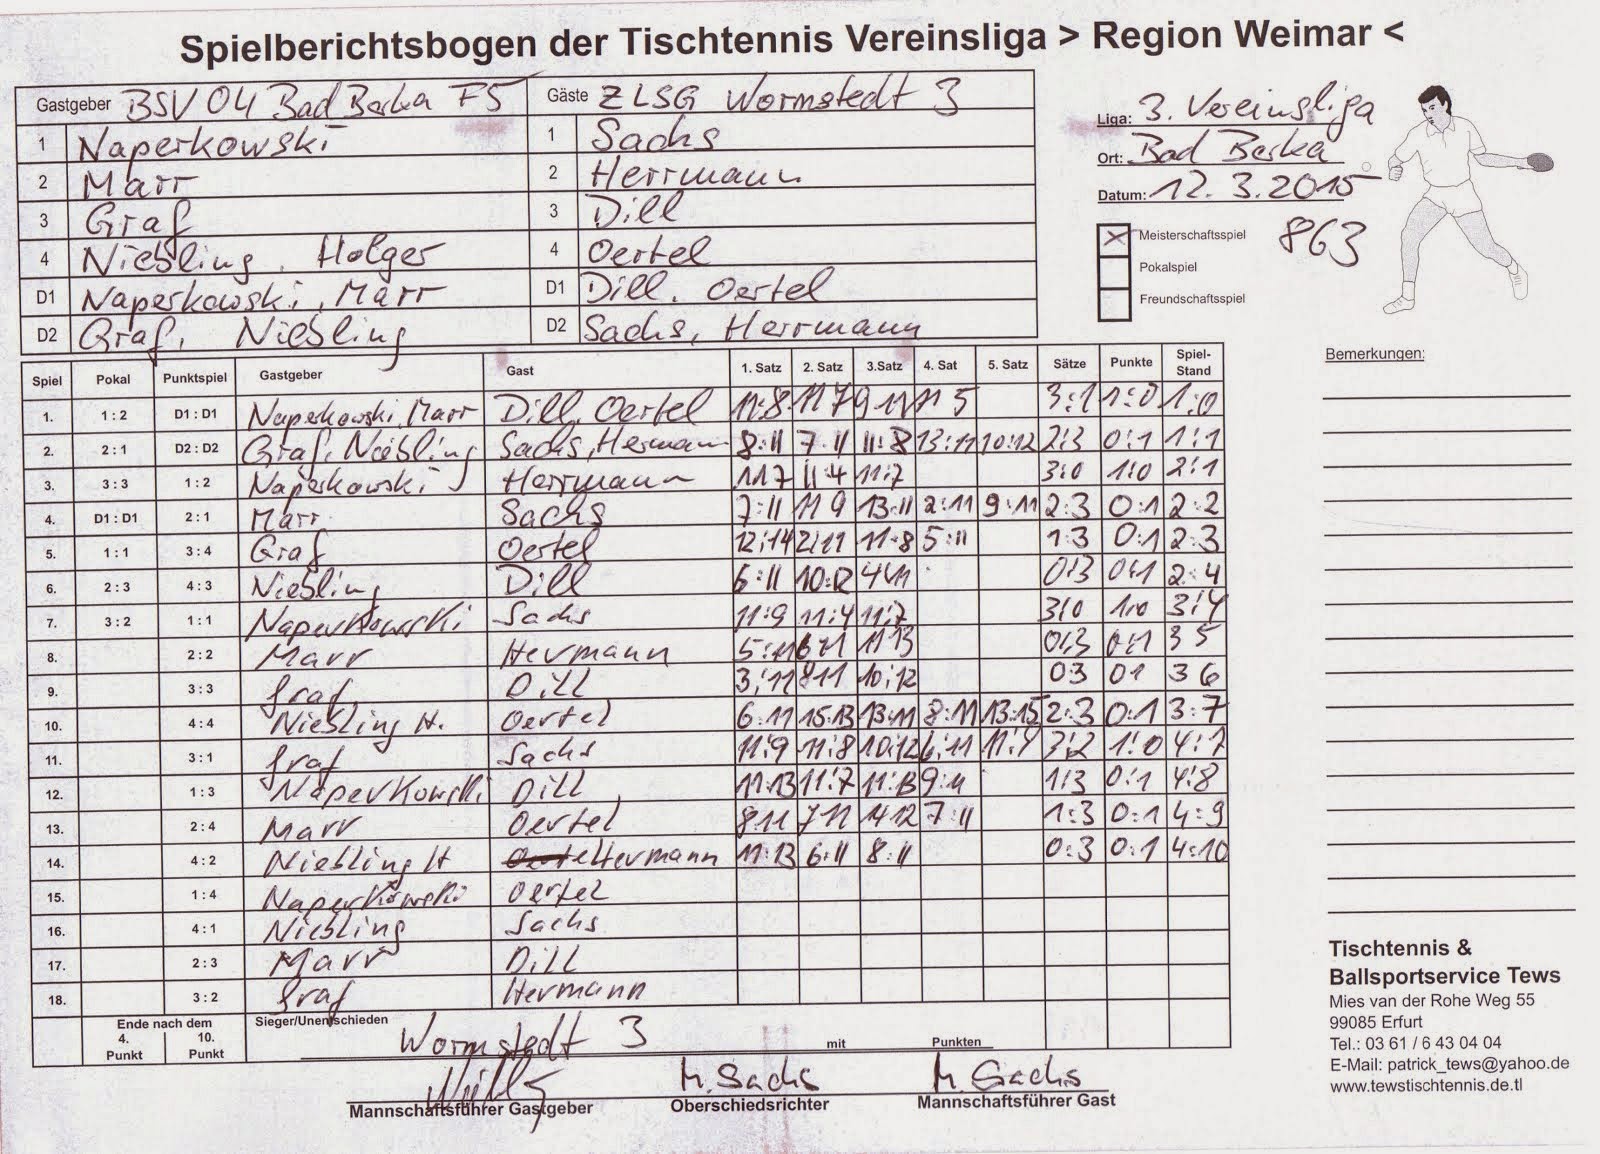 Spielberichtsbogen der Tischtennis Vereinsliga > Region Weimar <
Gastgeber BSV 04 Bad Berka F5 Gäste ZLSG Wormstedt 3
Liga: 3. Vereinsliga
Ort: Bad Berka
Datum: 12.3.2015
Meisterschaftsspiel 863
Pokalspiel
Freundschaftsspiel
1 Naperkowski 1 Sachs
2 Marr 2 Herrmann
3 Graf 3 Dill
4 Niebling, Holger 4 Oertel
D1 Naperkowski, Marr D1 Dill, Oertel
D2 Graf, Niebling D2 Sachs, Herrmann
Bemerkungen:
Spiel Pokal Punktspiel Gastgeber Gast 1. Satz 2. Satz 3.Satz 4. Sat 5. Satz Sätze Punkte Spiel-Stand
1. 1 : 2 D1 : D1 Naperkowski, Marr Dill, Oertel 11:8 11 7 9 11 11 5 3:1 1:0 1:0
2. 2 : 1 D2 : D2 Graf, Niebling Sachs, Hermann 8:11 7:11 11:8 13:11 10:12 2:3 0:1 1:1
3. 3 : 3 1 : 2 Naperkowski Herrmann 11 7 11:4 11:7 3:0 1:0 2:1
4. D1 : D1 2 : 1 Marr Sachs 7:11 11 9 13:11 2:11 9:11 2:3 0:1 2:2
5. 1 : 1 3 : 4 Graf Oertel 12:14 2:11 11:8 5:11 1:3 0:1 2:3
6. 2 : 3 4 : 3 Niebling Dill 6:11 10:12 4:11 0:3 0:1 2:4
7. 3 : 2 1 : 1 Naperkowski Sachs 11:9 11:4 11:7 3:0 1:0 3:4
8. 2 : 2 Marr Hermann 5:11 11 13 0:3 0:1 3 5
9. 3 : 3 Graf Dill 3:11 8 11 10:12 0 3 0 1 3 6
10. 4 : 4 Niebling H. Oertel 6:11 15:13 13:11 8:11 13:15 2:3 0:1 3:7
11. 3 : 1 Graf Sachs 11:9 11:8 10:12 6:11 3:2 1:0 4:7
12. 1 : 3 Naperkowski Dill 11:13 11:7 11:13 9:11 1:3 0:1 4:8
13. 2 : 4 Marr Oertel 8 11 7 11 14 12 7:11 1:3 0:1 4:9
14. 4 : 2 Niebling H Hermann 11:13 6:11 8:11 0:3 0:1 4:10
15. 1 : 4 Naperkowski Oertel
16. 4 : 1 Niebling Sachs
17. 2 : 3 Marr Dill
18. 3 : 2 Graf Hermann
Ende nach dem
4. Punkt 10. Punkt
Sieger/Unentschieden Wormstedt 3 mit Punkten
M. Sachs M. Sachs
Mannschaftsführer Gastgeber Oberschiedsrichter Mannschaftsführer Gast
Tischtennis &
Ballsportservice Tews
Mies van der Rohe Weg 55
99085 Erfurt
Tel.: 03 61 / 6 43 04 04
E-Mail: patrick_tews@yahoo.de
www.tewstischtennis.de.tl